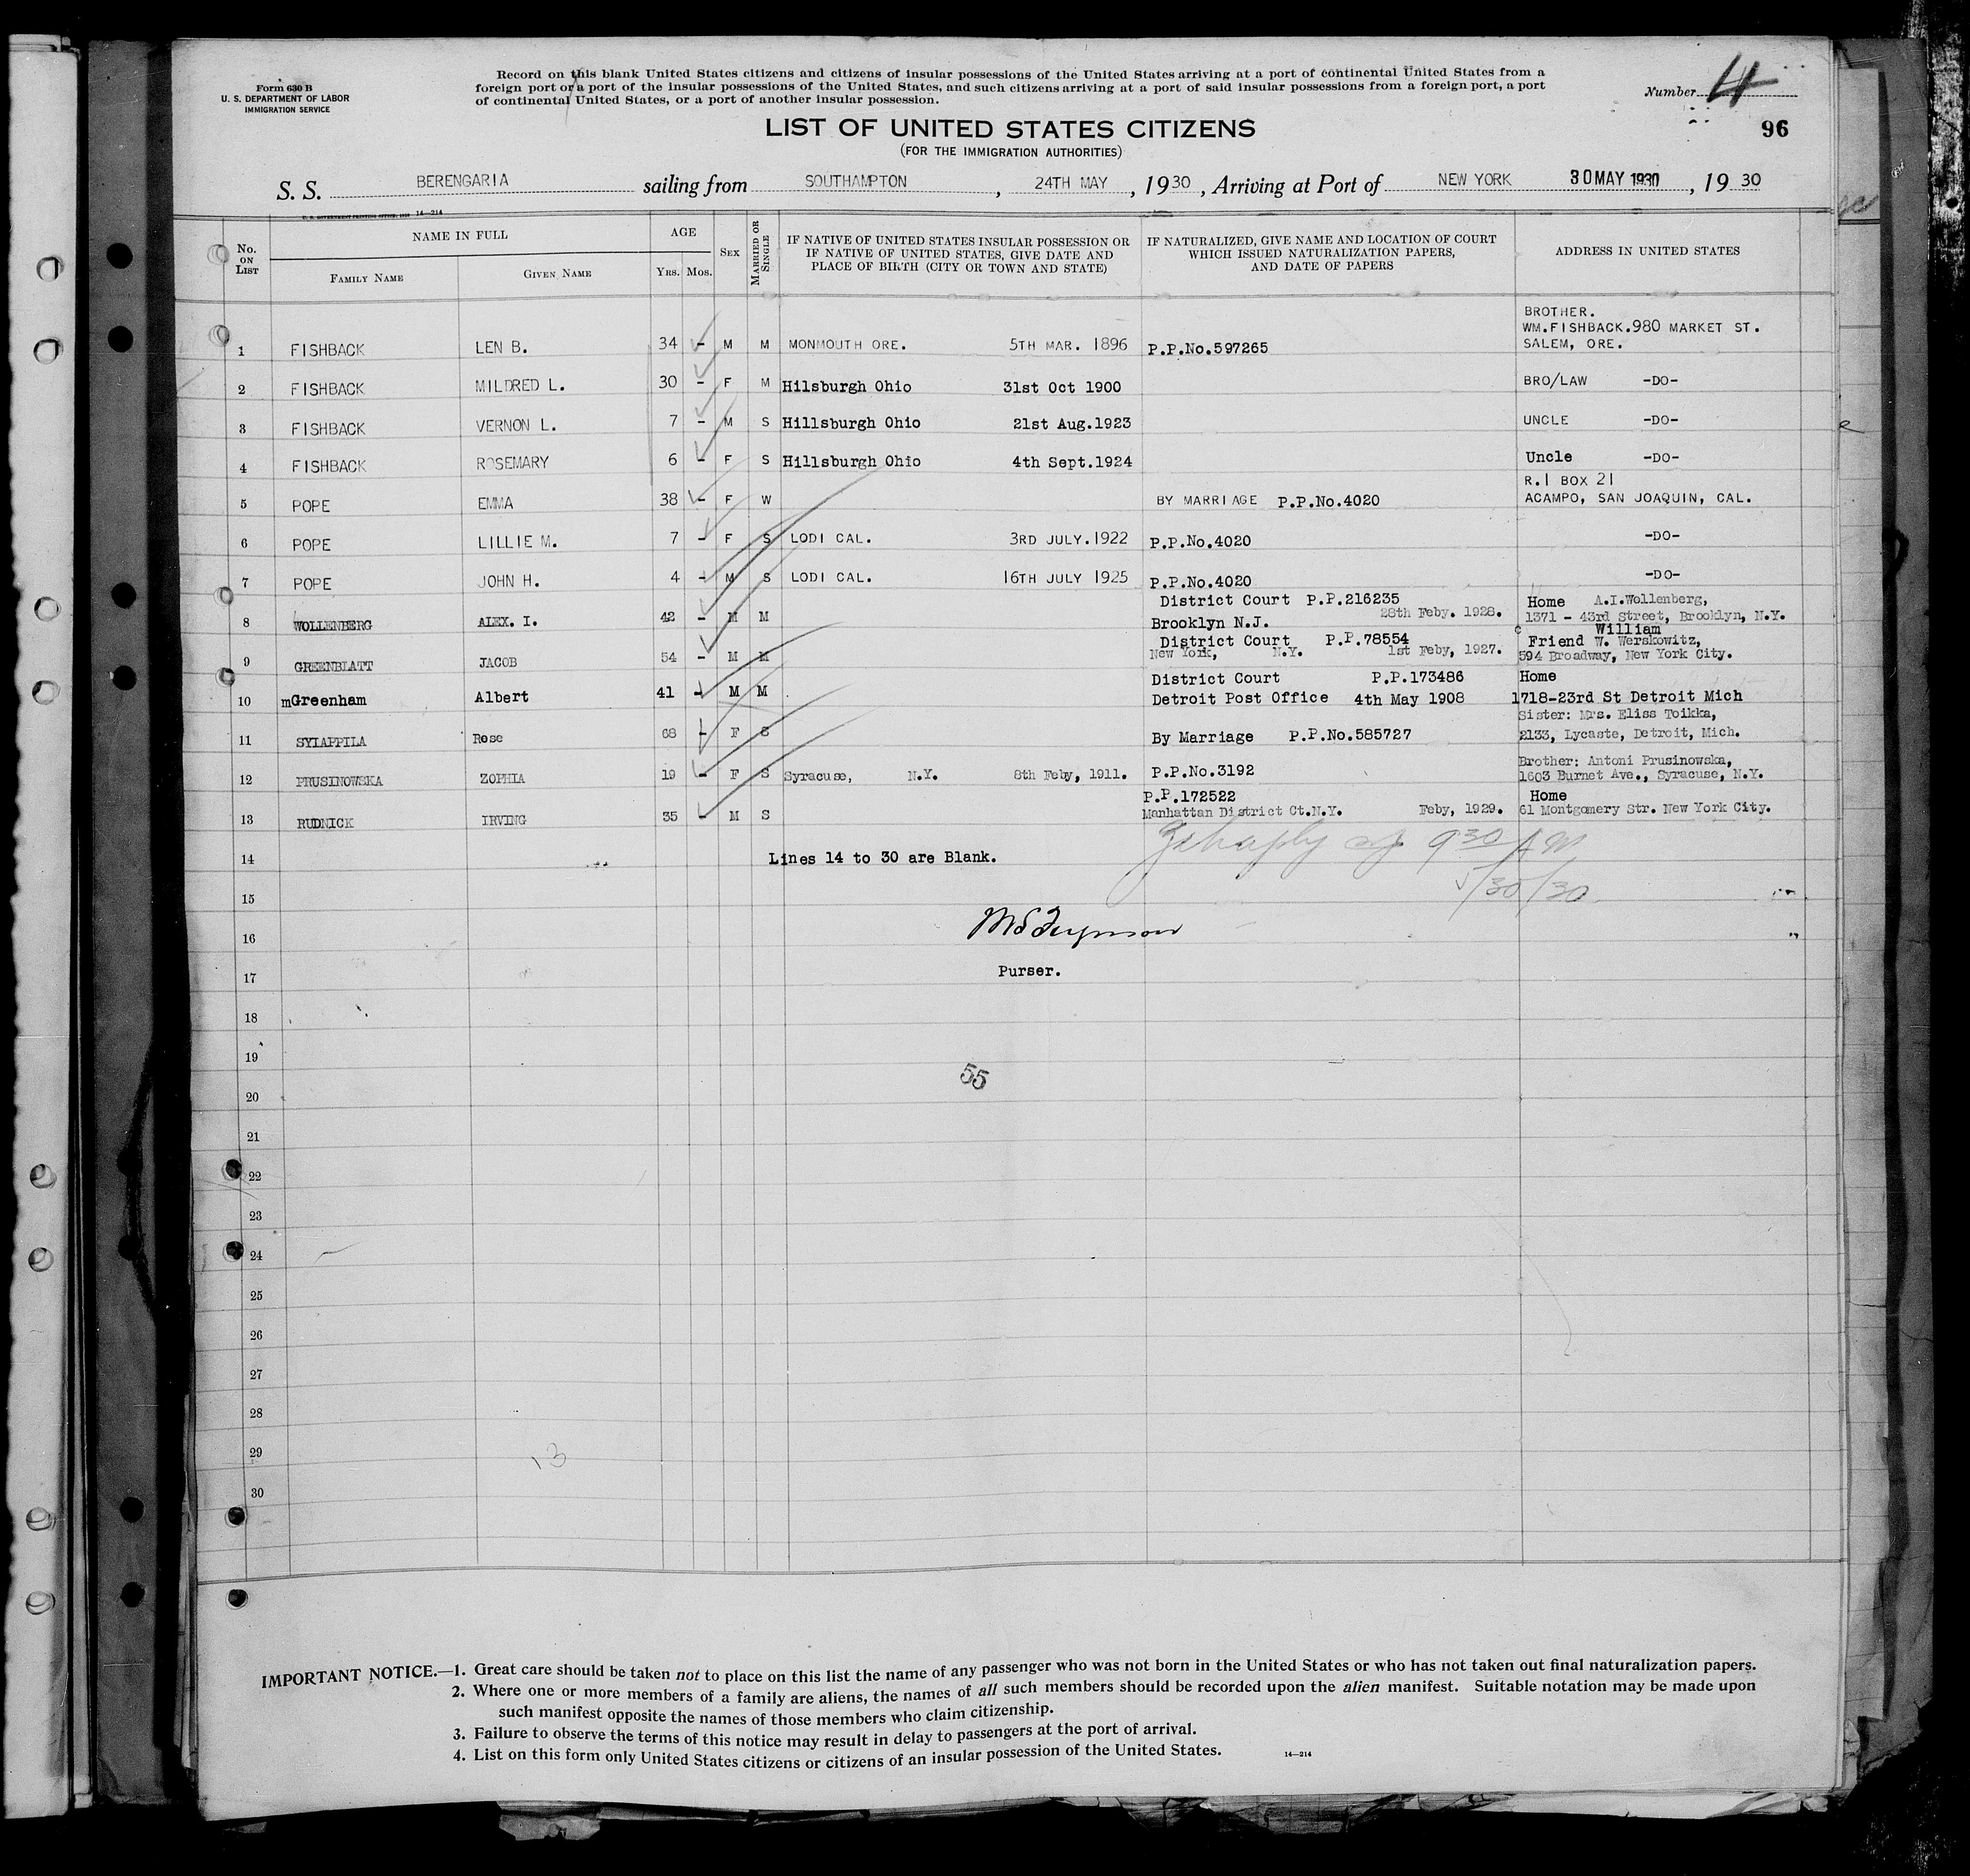 Form 630 B
U. S. DEPARTMENT OF LABOR
IMMIGRATION SERVICE
Record on this blank United States citizens and citizens of insular possessions of the United States arriving at a port of continental United States from a
foreign port or a port of the insular possessions of the United States, and such citizens arriving at a port of said insular possessions from a foreign port, a port
of continental United States, or a port of another insular possession.
Number 4
96
LIST OF UNITED STATES CITIZENS
(FOR THE IMMIGRATION AUTHORITIES)
S. S. BERENGARIA sailing from SOUTHAMPTON, 24TH MAY, 1930, Arriving at Port of NEW YORK 30 MAY 1930, 19 30
14—214
No. ON LIST NAME IN FULL AGE SEX MARRIED OR SINGLE IF NATIVE OF UNITED STATES INSULAR POSSESSION OR IF NATIVE OF UNITED STATES, GIVE DATE AND PLACE OF BIRTH (CITY OR TOWN AND STATE) IF NATURALIZED, GIVE NAME AND LOCATION OF COURT WHICH ISSUED NATURALIZATION PAPERS, AND DATE OF PAPERS ADDRESS IN UNITED STATES
FAMILY NAME GIVEN NAME YRS. MOS.
BROTHER.
WM.FISHBACK.980 MARKET ST.
1 FISHBACK LEN B. 34 - M M MONMOUTH ORE. 5TH MAR. 1896 P.P.No.597265 SALEM, ORE.
2 FISHBACK MILDRED L. 30 - F M Hilsburgh Ohio 31st Oct 1900 BRO/LAW -DO-
3 FISHBACK VERNON L. 7 - M S Hillsburgh Ohio 21st Aug.1923 UNCLE -DO-
4 FISHBACK ROSEMARY 6 - F S Hillsburgh Ohio 4th Sept.1924 Uncle -DO-
R.1 BOX 21
5 POPE EMMA 38 - F W BY MARRIAGE P.P.No.4020 ACAMPO, SAN JOAQUIN, CAL.
6 POPE LILLIE M. 7 - F S LODI CAL. 3RD JULY.1922 P.P.No.4020 -DO-
7 POPE JOHN H. 4 - M S LODI CAL. 16TH JULY 1925 P.P.No.4020 -DO-
District Court P.P.216235 Home A.I.Wollenberg,
28th Feby. 1928. 1371 - 43rd Street, Brooklyn, N.Y.
8 WOLLENBERG ALEX. I. 42 - M M Brooklyn N.J.
William
District Court P.P.78554 Friend W. Werskowitz,
9 GREENBLATT JACOB 54 - M M New York, N.Y. 1st Feby, 1927. 594 Broadway, New York City.
District Court P.P.173486 Home
10 mGreenham Albert 41 - M M Detroit Post Office 4th May 1908 1718-23rd St Detroit Mich
Sister: Mrs. Eliss Toikka,
11 SYIAPPILA Rose 68 - F S By Marriage P.P.No.585727 2133, Lycaste, Detroit, Mich.
Brother: Antoni Prusinowska,
12 PRUSINOWSKA ZOPHIA 19 - F S Syracuse, N.Y. 8th Feby, 1911. P.P.No.3192 1603 Burnet Ave., Syracuse, N.Y.
P.P.172522 Home
13 RUDNICK IRVING 35 - M S Manhattan District Ct.N.Y. Feby, 1929. 61 Montgomery Str. New York City.
14 Lines 14 to 30 are Blank.
9 30 AM
5/30/30
15
16
17 Purser.
18
19
55
20
21
22
23
24
25
26
27
28
29
13
30
IMPORTANT NOTICE.—1. Great care should be taken not to place on this list the name of any passenger who was not born in the United States or who has not taken out final naturalization papers.
2. Where one or more members of a family are aliens, the names of all such members should be recorded upon the alien manifest. Suitable notation may be made upon
such manifest opposite the names of those members who claim citizenship.
3. Failure to observe the terms of this notice may result in delay to passengers at the port of arrival.
4. List on this form only United States citizens or citizens of an insular possession of the United States.
14—214